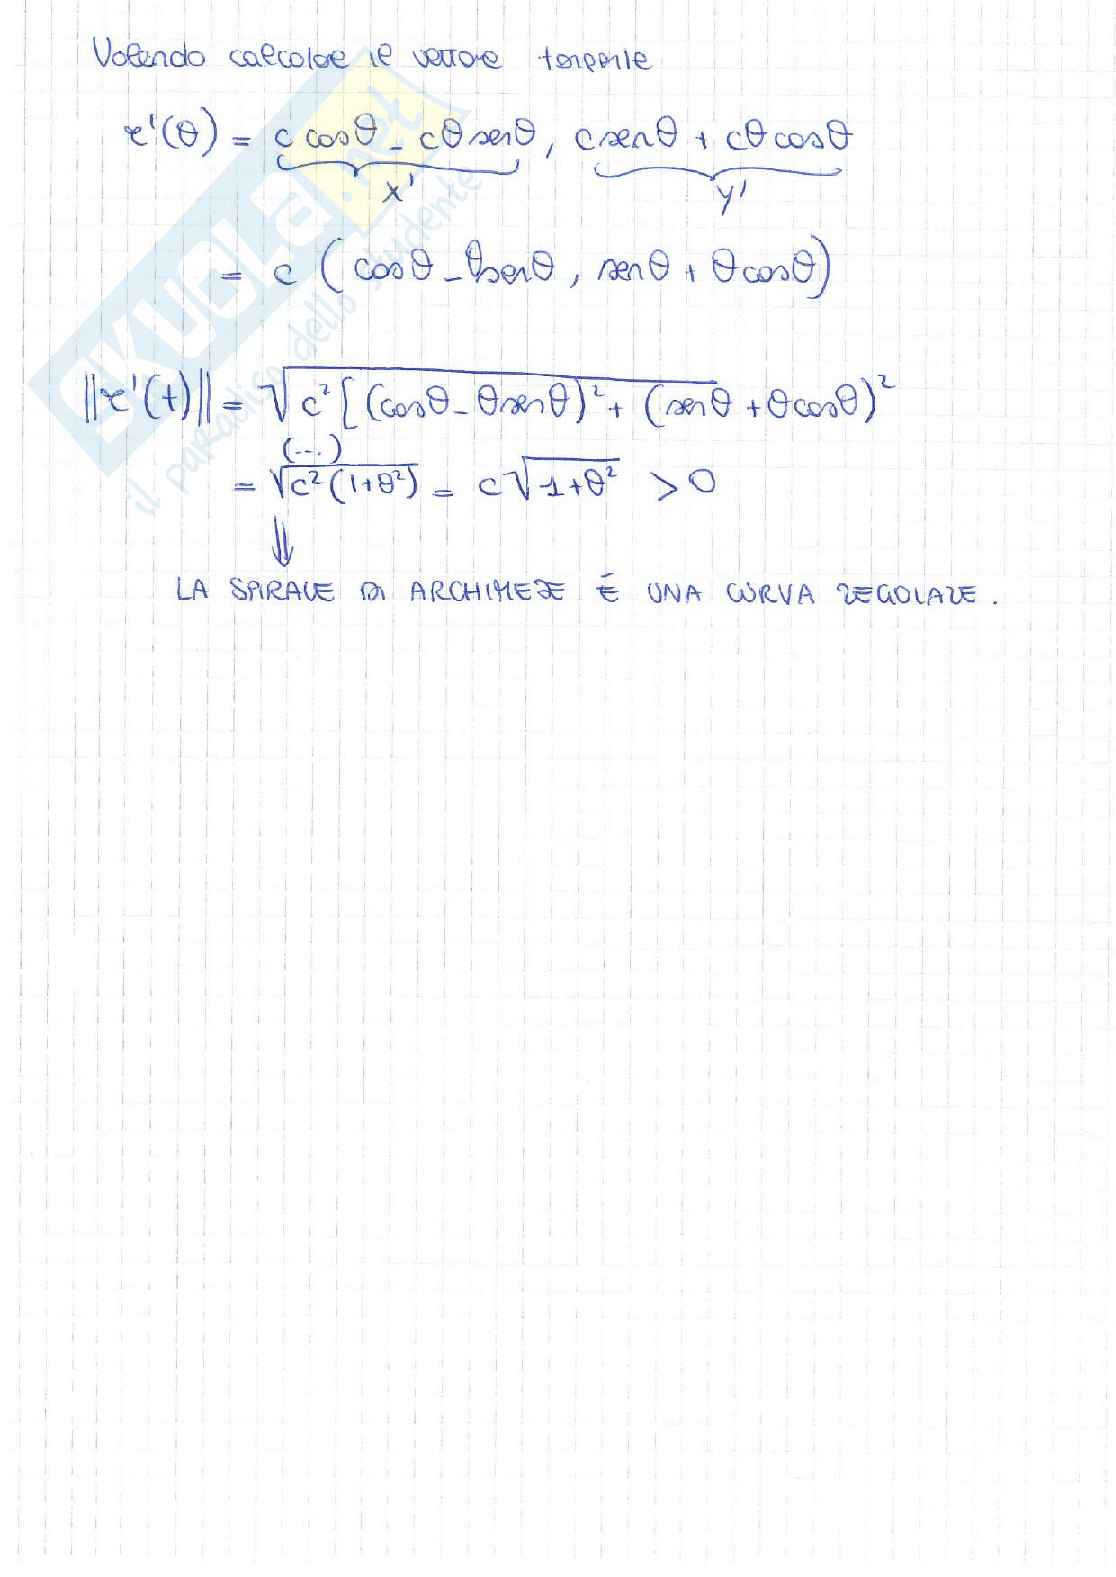 Volendo calcolare il vettore tangente
r'(θ) = c cosθ - cθ senθ, c senθ + cθ cosθ
x' y'
= c (cosθ - θ senθ, senθ + θ cosθ)
||r'(t)|| = √c² [(cosθ - θ senθ)² + (senθ + θ cosθ)²
(...)
= √c² (1+θ²) = c √1+θ² > 0
⇓
LA SPIRALE DI ARCHIMEDE É UNA CURVA REGOLARE.
SKUOLA.net
il paradiso dello studente